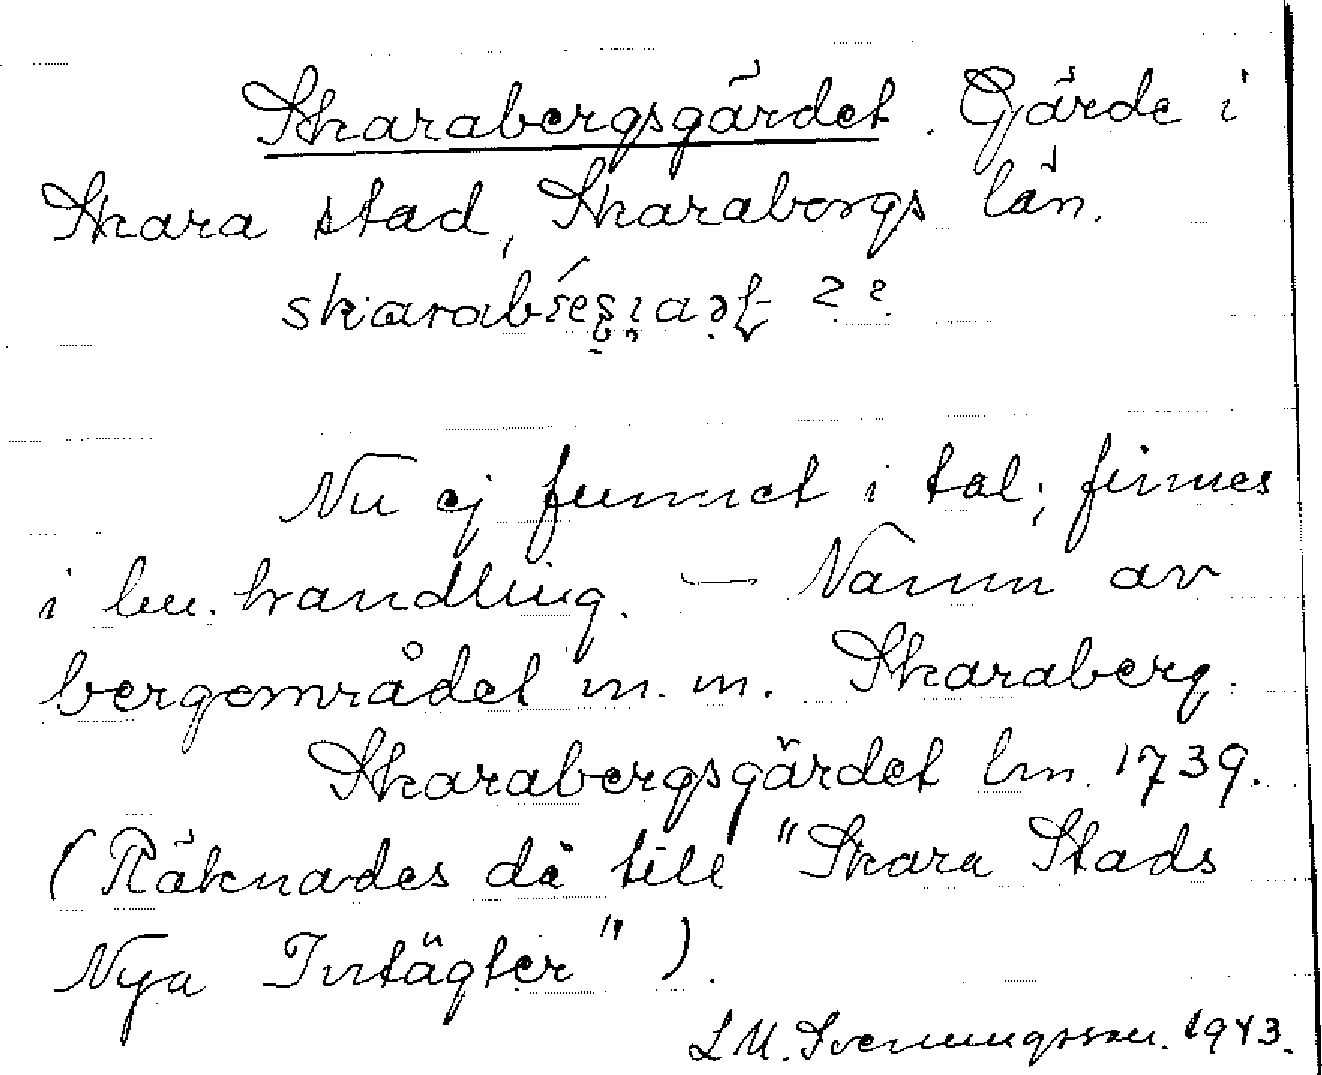 Skarabergsgärdet. Gärde i
Skara stad, Skaraborgs län.
??
Nu ej funnet i tal; finnes
i lm. handling. — Namn av
bergområdet m. m. Skaraberg.
Skarabergsgärdet lm. 1739.
(Räknades då till "Skara Stads
Nya Intägter").
L M. Svenungsson. 1943.